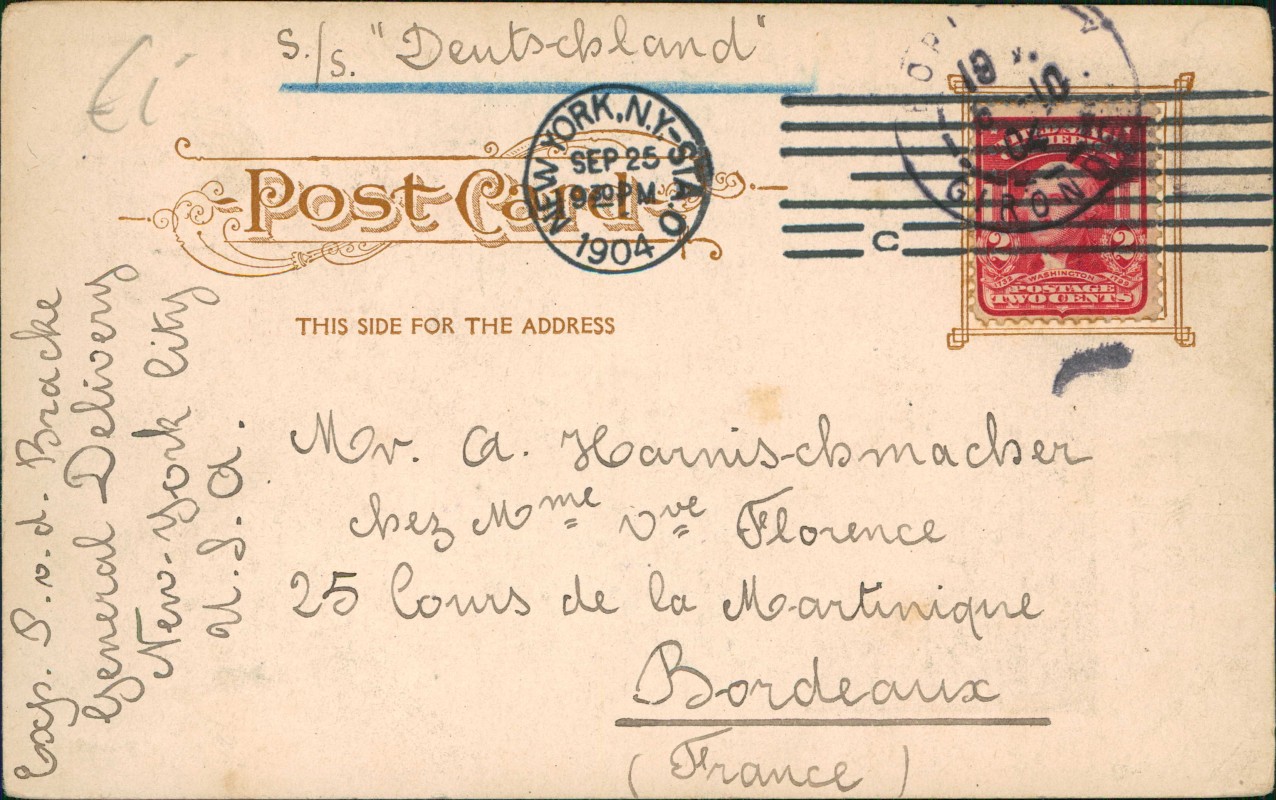 S./S. "Deutschland"
Post Card
NEW YORK, N.Y.-STA.O
SEP 25
9 30 PM
1904
C
GIRONDE
2 2
1732 WASHINGTON 1799
POSTAGE
TWO CENTS
THIS SIDE FOR THE ADDRESS
Mr. A. Harnischmacher
chez Mme Vve Florence
25 Cours de la Martinique
Bordeaux
(France)
Exp. P. v. d. Bracke
General Delivery
New-York City
U.S.A.